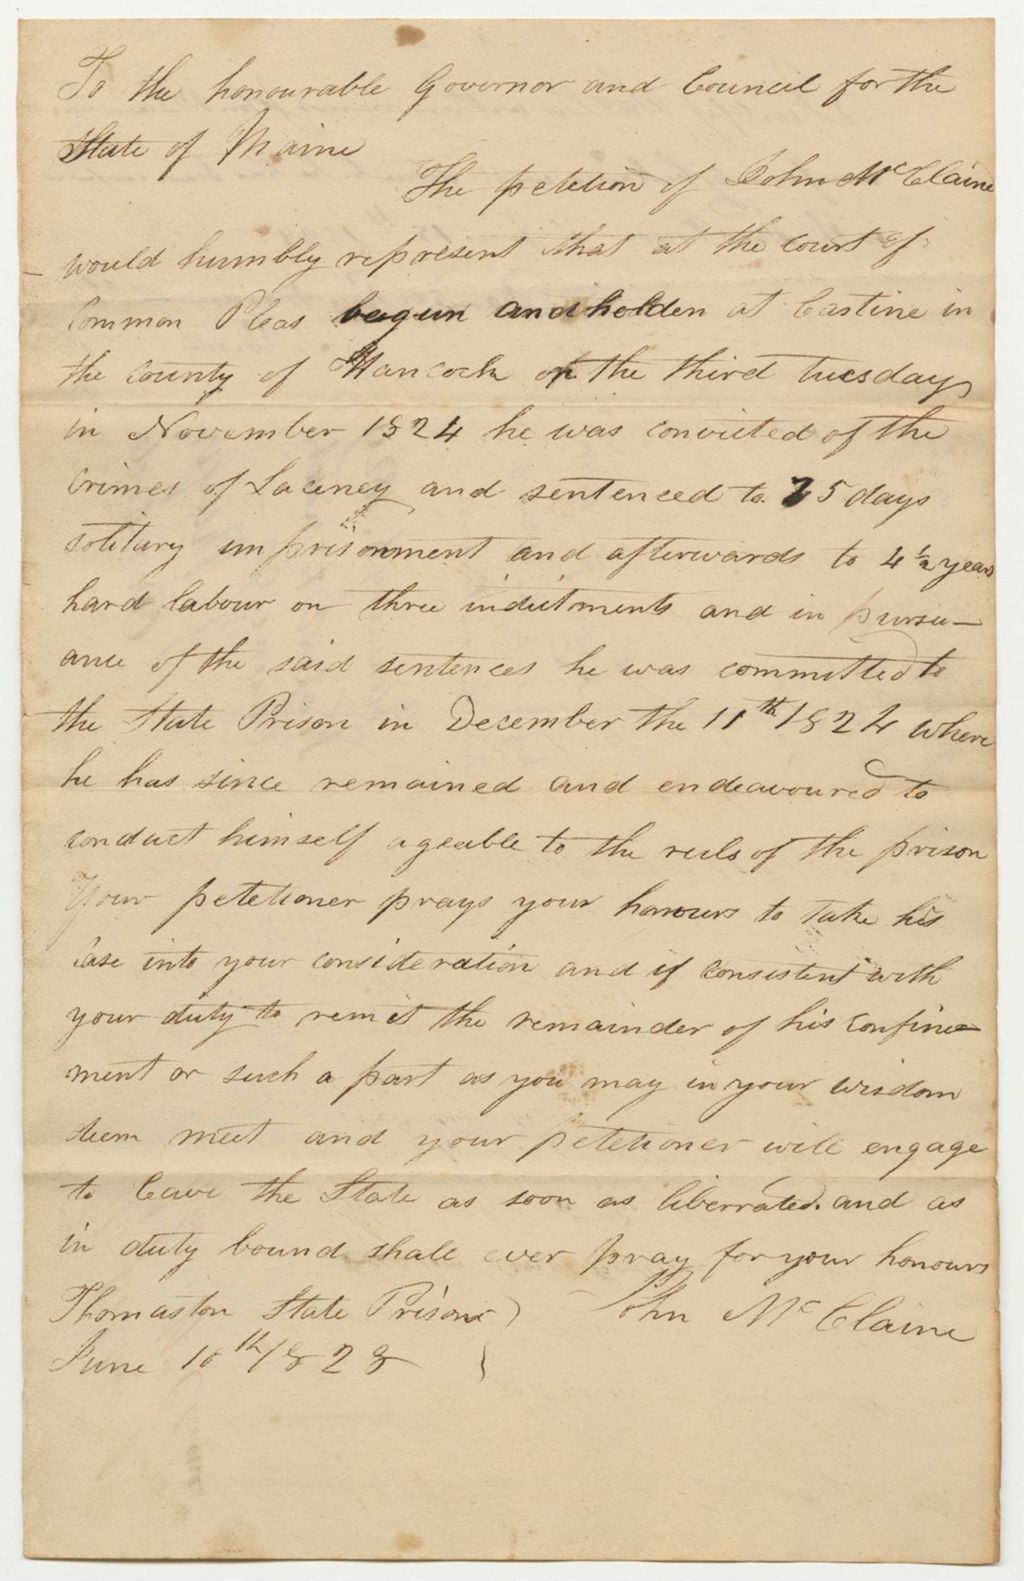 To the honourable Governor and Council for the
State of Maine
The petetion of John McClaine
would humbly represent that at the Court of
Common Pleas begun and holden at Castine in
the county of Hancock on the third tuesday
in November 1824 he was convicted of the
Crimes of Laceney and sentenced to 75 days
solitary imprisonment and afterwards to 4 ½ years
hard labour on three indictments and in pursu-
ance of the said sentences he was committed to
the State Prison in December the 11th 1824 where
he has since remained and endeavoured to
conduct himself ageable to the ruls of the prison
Your petetioner prays your honours to take his
Case into your consideration and if consistent with
your duty to remit the remainder of his confine-
ment or such a part as you may in your wisdom
deem meet and your petetioner will engage
to leave the State as soon as liberrated. and as
in duty bound shall ever pray for your honours
Thomaston State Prison ) John McClaine
June 10th 1828